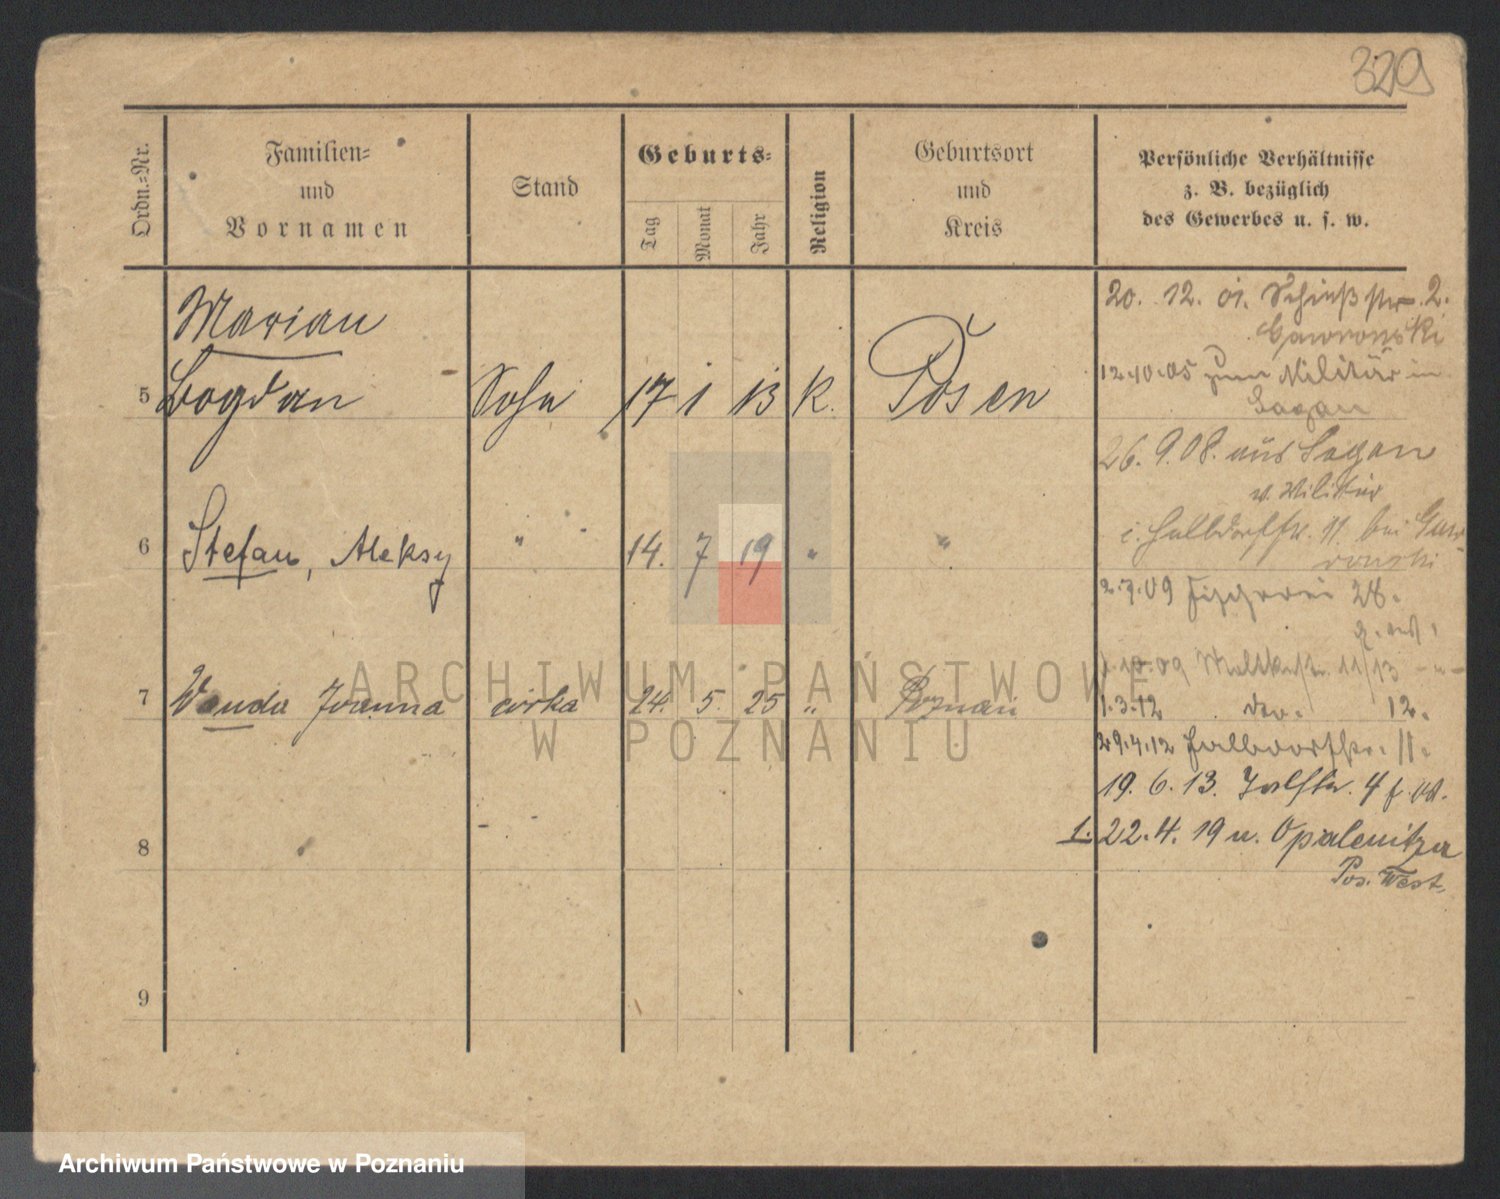 329
Ordn.-Nr.
Familien-
und
Vornamen
Stand
Geburts-
Tag
Monat
Jahr
Religion
Geburtsort
und
Kreis
Persönliche Verhältnisse
z. B. bezüglich
des Gewerbes u. s. w.
Marian
5 Bogdan Sohn 17 1 13 K. Posen
6 Stefan, Aleksy " 14. 7 19 " "
7 Wanda Joanna córka 24. 5. 25 " Poznań
8
9
20. 12. 01. Schießstr. 2.
Gawronski
12.10.05 zum Militär in
Sagan
26. 9. 08. aus Sagan
v. Militär
i. Halbdorfstr. 11. bei Gaw-
ronski
2.7.09 Fischerei 28.
1.10.09 Moltkestr. 11/13
1.3.12 do. 12.
29.4.12 Halbdorfstr. 11.
19. 6. 13. 4
1. 22. 4. 19 n. Opalenitza
Pos. West.
ARCHIWUM PAŃSTWOWE
W POZNANIU
Archiwum Państwowe w Poznaniu